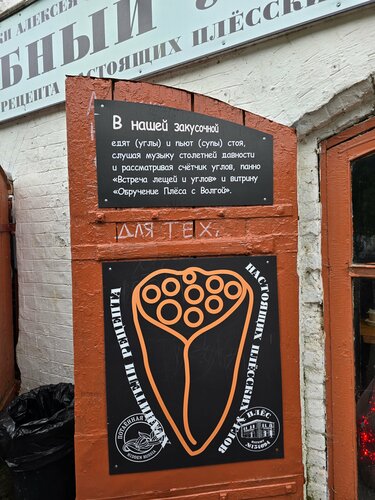 КИ АЛЕКСЕЯ
БНЫЙ
РЕЦЕПТА НАСТОЯЩИХ ПЛЁССКИ
В нашей закусочной
едят (углы) и пьют (супы) стоя,
слушая музыку столетней давности
и рассматривая счётчик углов, панно
«Встреча лещей и углов» и витрину
«Обручение Плёса с Волгой».
ДЛЯ ТЕХ,
ХРАНИТЕЛИ РЕЦЕПТА
НАСТОЯЩИХ ПЛЁССКИХ УГЛОВ
ПОТАЁННАЯ
ПЛЁС